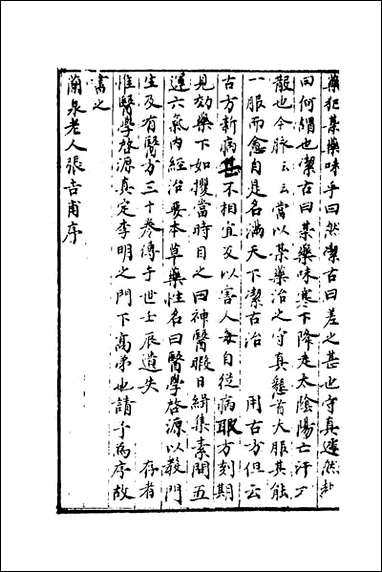 藥犯某藥味乎曰然潔古曰差之甚也守真遽然起
曰何謂也潔古曰某藥味寒下降走太陰陽亡汗不
能也今脉云云當以某藥治之守真懇首大服其能
一服而愈自是名滿天下潔古治 用古方但云
古方新病甚不相宜反以害人每自從病取方刻期
見効藥下如攫當時目之曰神醫暇日緝集素問五
運六氣內經治要本草藥性名曰醫學啓源以教門
生及有醫方三十卷傳于世壬辰遺失 存者
惟醫學啓源真定李明之門下高弟也請予為序故
書之
蘭泉老人張吉甫序